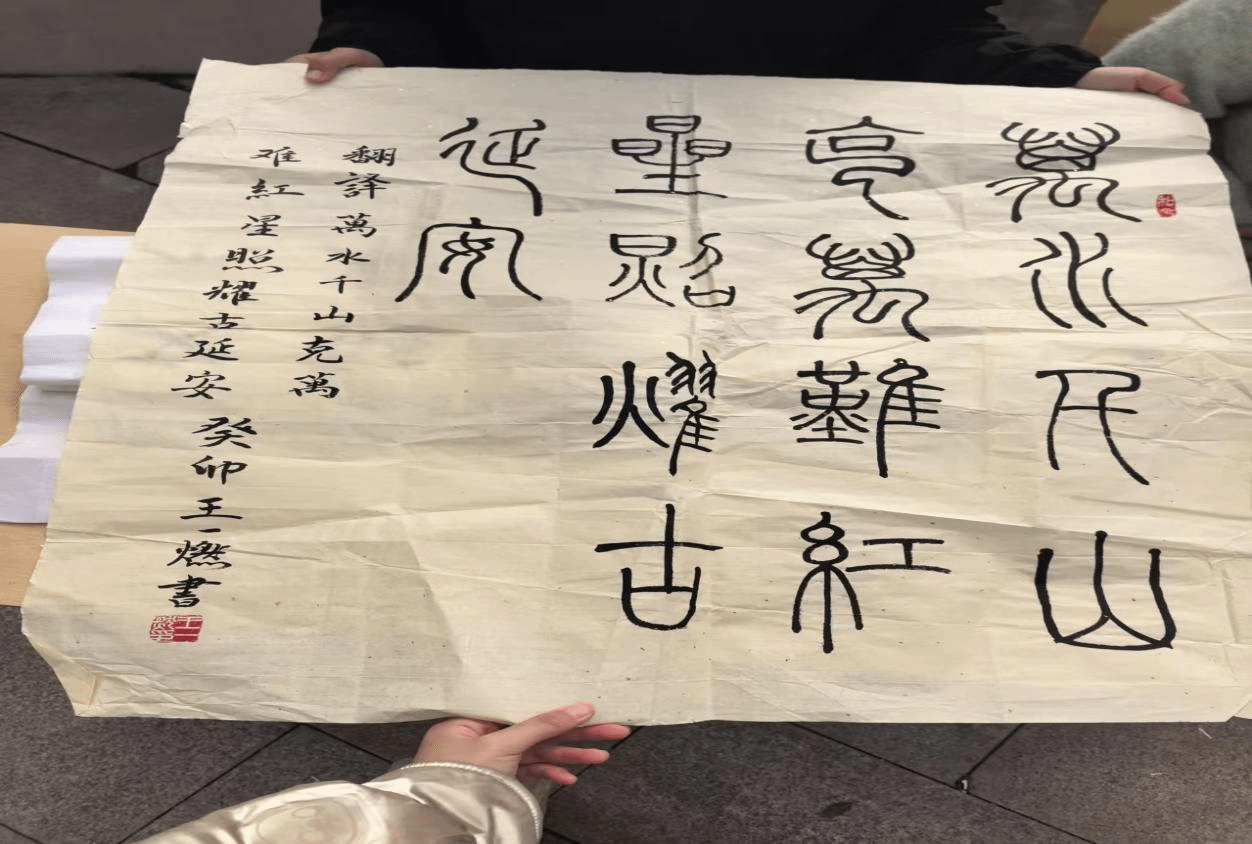 萬水千山
克萬難紅
星照耀古
延安
翻譯萬水千山克萬
难紅星照耀古延安 癸卯王一燃書